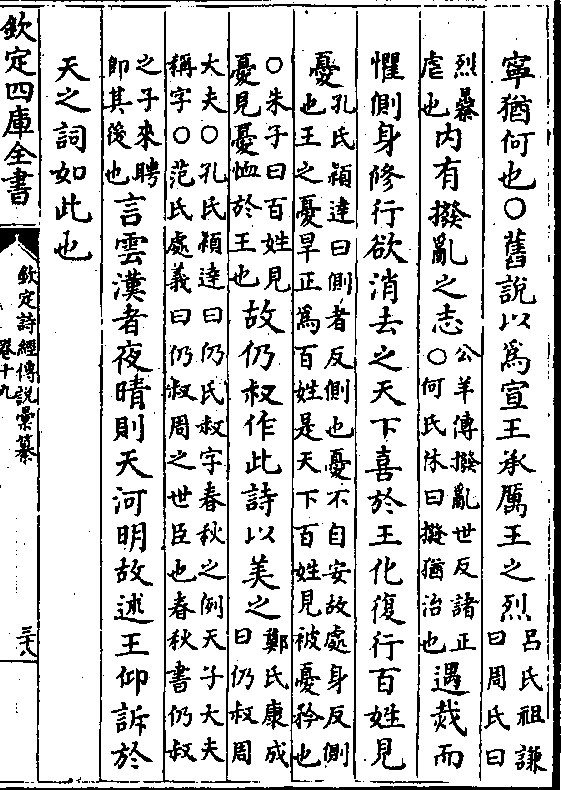 寜猶何也○舊說以爲宣王承厲王之烈呂氏祖謙曰周氏曰
烈暴虐也内有撥亂之志公羊傳撥亂世反諸正○何氏休曰撥猶治也遇烖而
懼側身修行欲消去之天下喜於王化復行百姓見
憂孔氏穎達曰側者反側也憂不自安故處身反側也王之憂旱正爲百姓是天下百姓見被憂矜也
○朱子曰百姓見憂見憂恤於王也故仍叔作此詩以美之鄭氏康成曰仍叔周
大夫○孔氏穎達曰仍氏叔字春秋之例天子大夫稱字○范氏處義曰仍叔周之世臣也春秋書仍叔
之子來聘即其後也言雲漢者夜晴則天河明故述王仰訴於
天之詞如此也
欽定四庫全書
欽定詩經傳說彙纂
卷十九
三十八